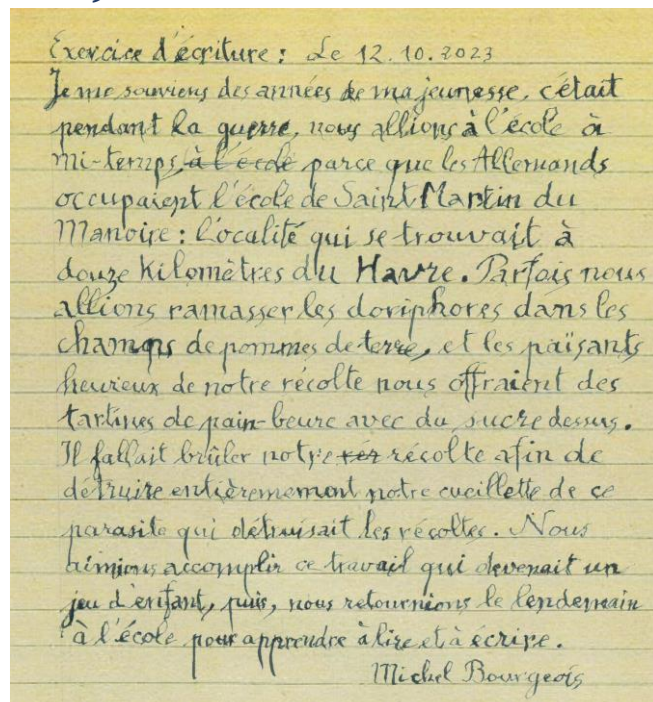 Exercice d'écriture : Le 12.10.2023
Je me souviens des années de ma jeunesse, c'était
pendant la guerre, nous allions à l'école à
mi-temps, à l'école parce que les Allemands
occupaient l'école de Saint Martin du
Manoire : localité qui se trouvait à
douze Kilomètres du Havre. Parfois nous
allions ramasser les doriphores dans les
champs de pommes de terre, et les païsants
heurieux de notre récolte nous offraient des
tartines de pain-beure avec du sucre dessus.
Il fallait brûler notre rér récolte afin de
détruire entièremement notre cueillette de ce
parasite qui détruisait les récoltes. Nous
aimions accomplir ce travail qui devenait un
jeu d'enfant, puis, nous retournions le lendemain
à l'école pour apprendre à lire et à écrire.
Michel Bourgeois